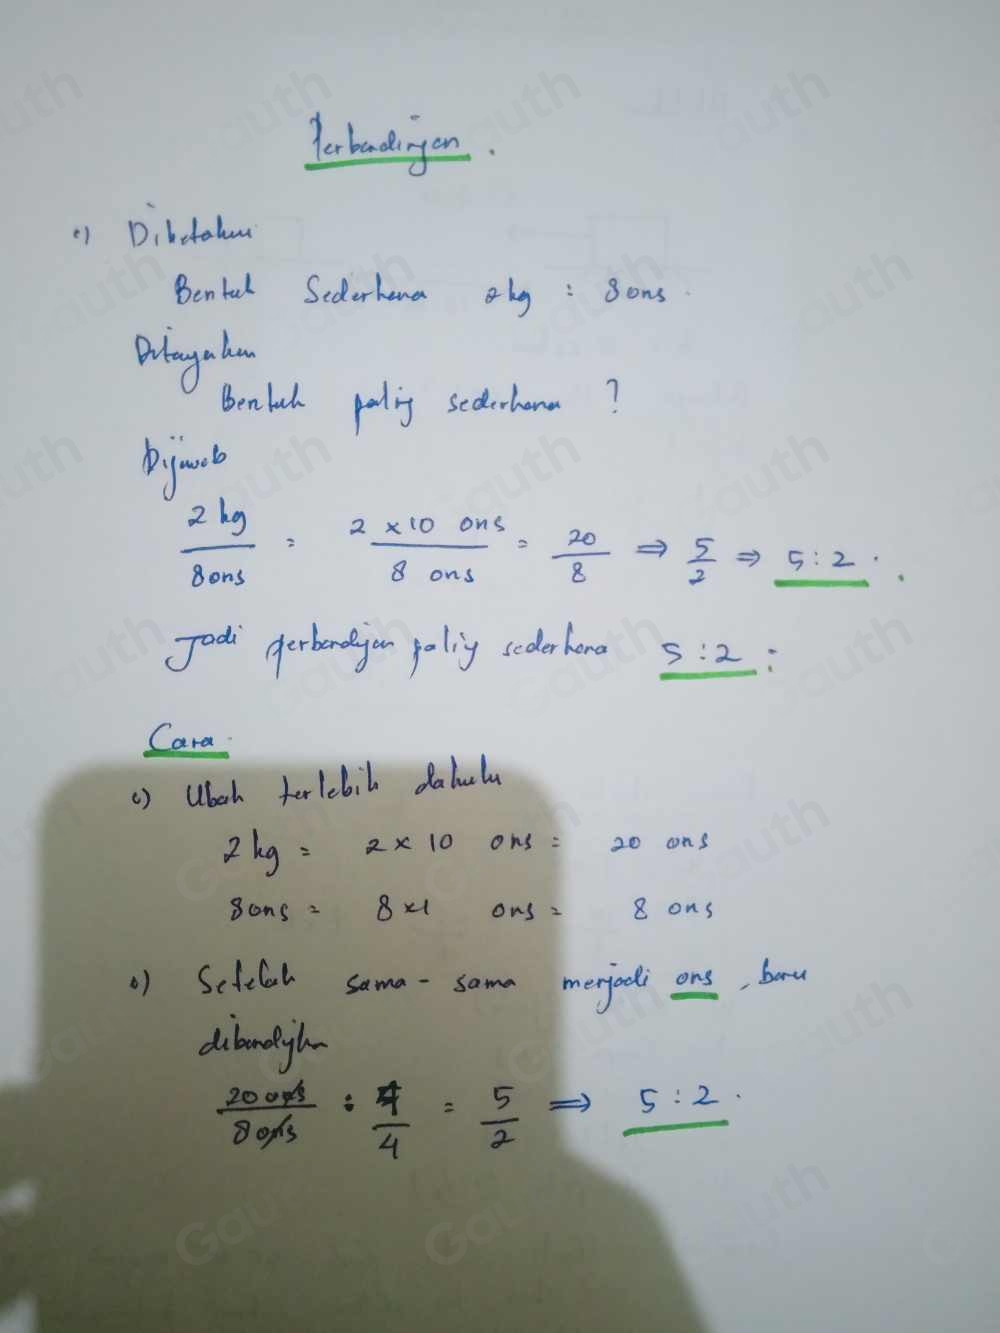 Perbandingan.
•) Diketahui
Bentuk Sederhana 2 kg : 8 ons.
Ditayakan
Bentuk palig sederhana ?
Dijawab
2 kg / 8 ons = 2 x 10 ons / 8 ons = 20 / 8 ⇒ 5 / 2 ⇒ 5 : 2.
Jadi perbandijan palig sederhana 5 : 2 :
Cara.
•) Ubah terlebih dahulu
2 kg = 2 x 10 ons = 20 ons
8 ons = 8 x 1 ons = 8 ons
•) Setelah sama - sama menjadi ons, baru
dibandijkn
20 ons / 8 ons : 4 / 4 = 5 / 2 ⇒ 5 : 2.